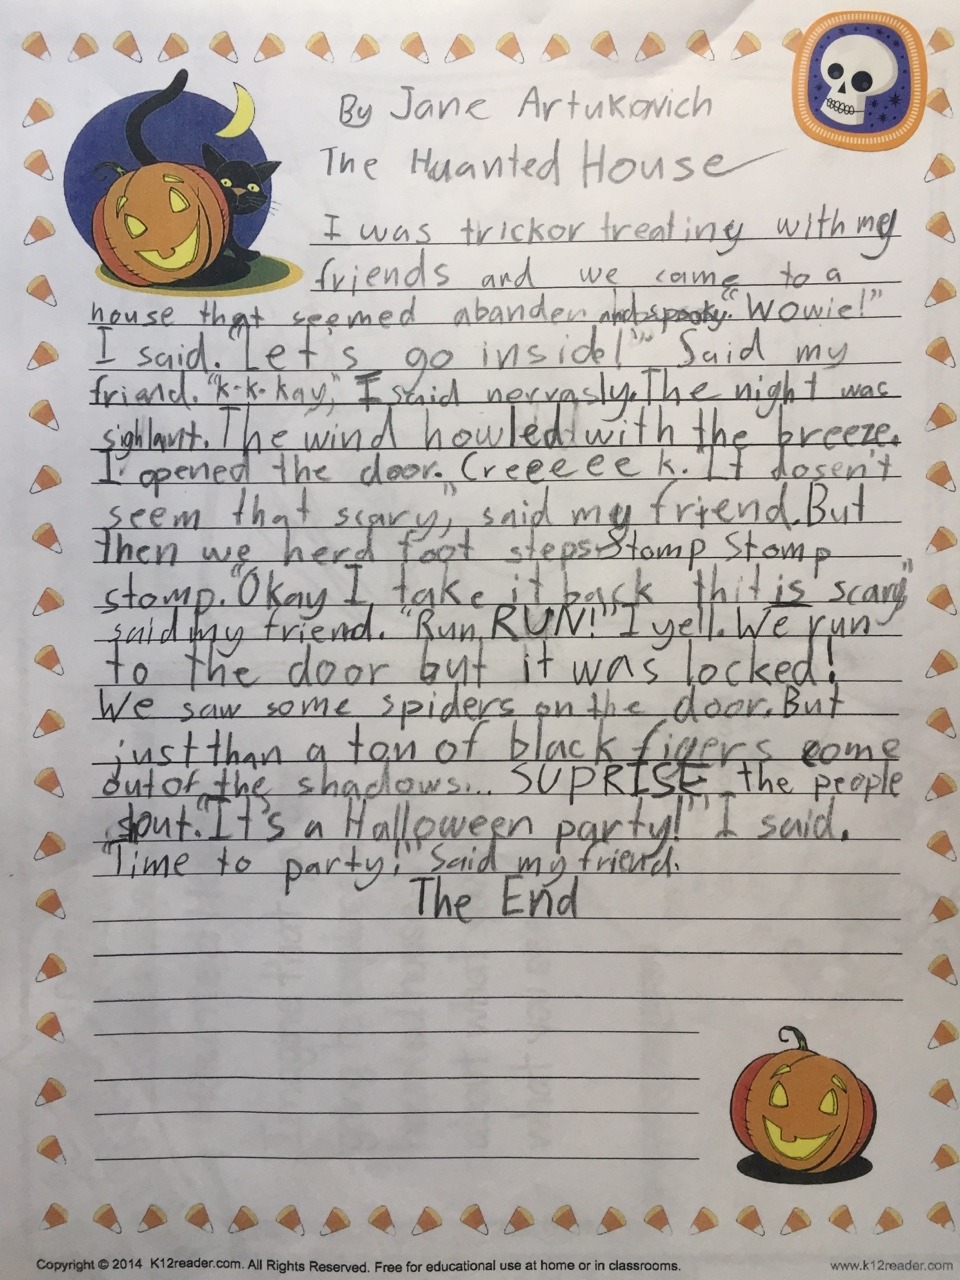 By Jane Artukovich
The Huanted House
I was trickor treating with my
friends and we came to a
house that seemed abanden and spooky. "Wowie!"
I said. "Let's go inside!" Said my
friend. "k-k-kay," I said nervasly. The night was
sighlant. The wind howled with the breeze.
I opened the door. Creeeeek. "It dosen't
seem that scary," said my friend. But
then we herd foot steps. Stomp Stomp
stomp. "Okay I take it back thit is scary"
said my friend. "Run, RUN!" I yell. We run
to the door but it was locked!
We saw some spiders on the door. But
just than a ton of black figers come
out of the shadows... SUPRISE the people
shout. "It's a Halloween party!" I said.
"Time to party!" Said my friend.
The End
Copyright © 2014 K12reader.com. All Rights Reserved. Free for educational use at home or in classrooms.
www.k12reader.com